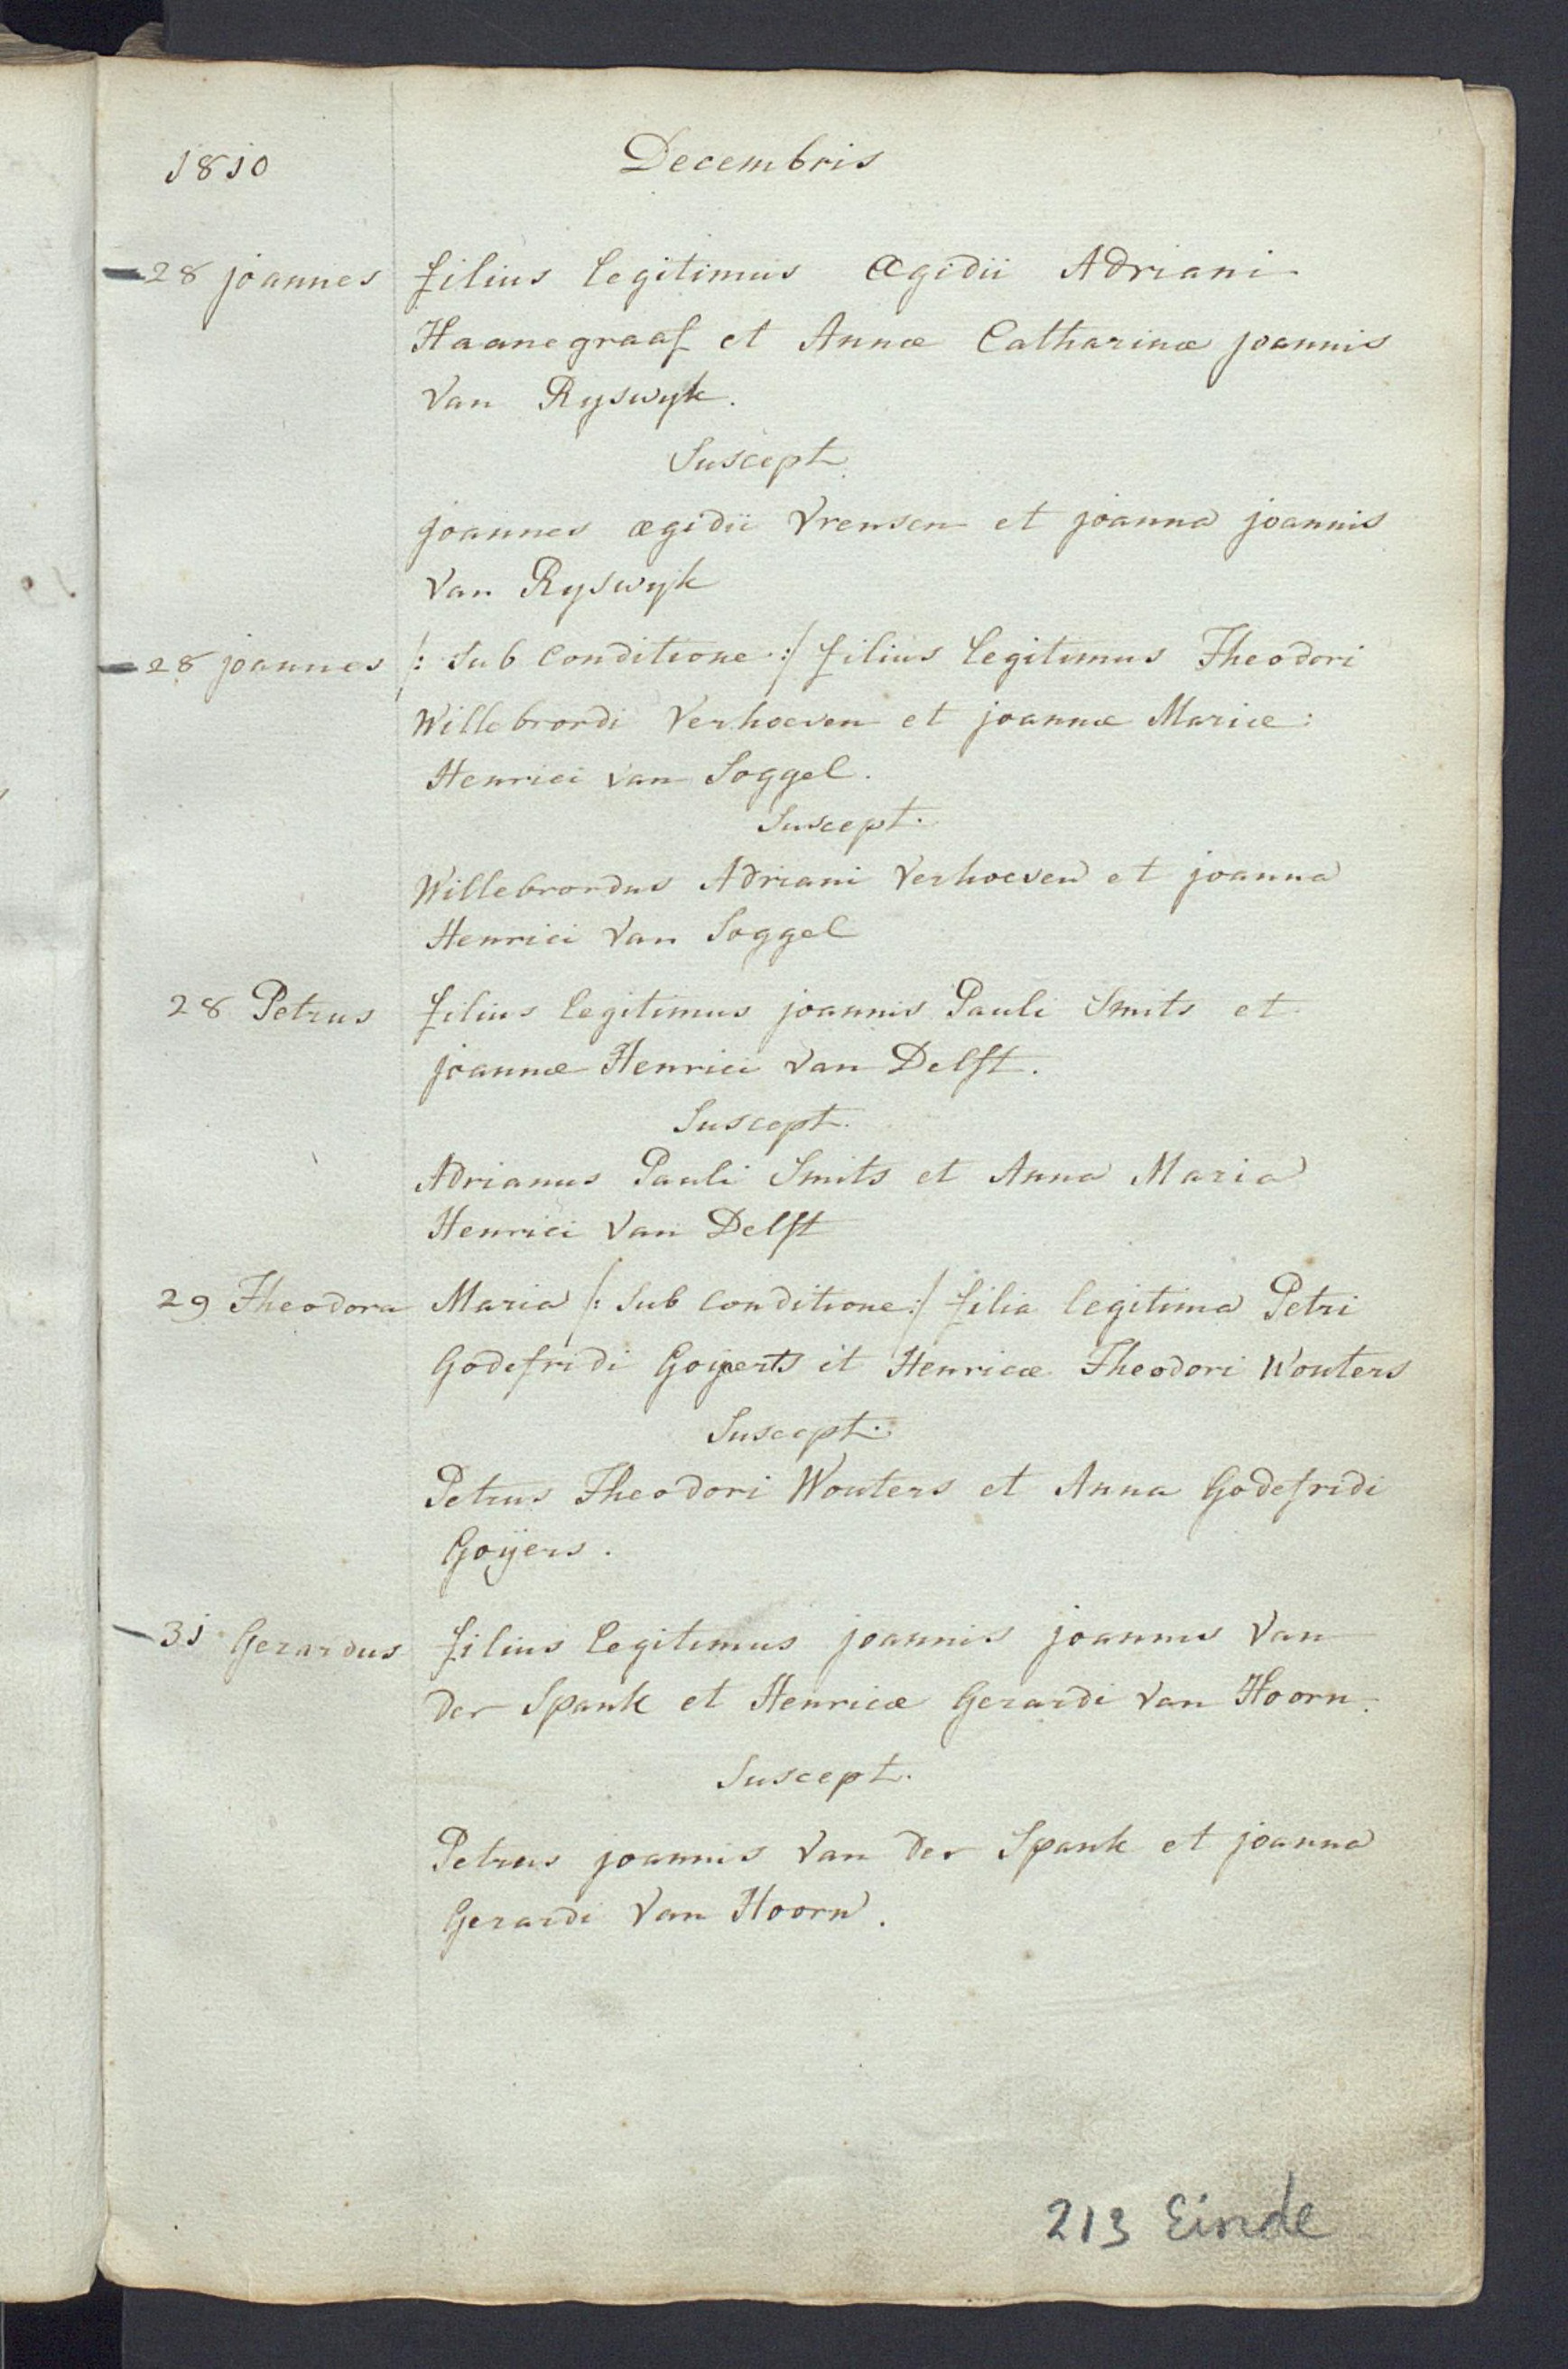 1810 Decembris
28 joannes filius legitimus ægidii Adriani
Haanegraaf et Annæ Catharinæ joannis
Van Ryswyk.
Suscept
joannes ægidii Vrensen et joanna joannis
Van Ryswyk
28 joannes /: sub conditione :/ filius legitimus Theodori
Willebrordi Verhoeven et joannæ Mariæ:
Henrici van Soggel.
Suscept.
Willebrordus Adriani Verhoeven et joanna
Henrici Van Soggel
28 Petrus filius legitimus joannis Pauli Smits et
joannæ Henrici Van Delft.
Suscept.
Adrianus Pauli Smits et Anna Maria
Henrici Van Delft
29 Theodora Maria /: sub conditione :/ filia legitima Petri
Godefridi Goyerts et Henricæ Theodori Wouters
Suscept.
Petrus Theodori Wouters et Anna Godefridi
Goÿers.
31 Gerardus filius legitimus joannis joannis Van
der Spank et Henricæ Gerardi Van Hoorn.
Suscept.
Petrus joannis Van der Spank et joanna
Gerardi Van Hoorn.
213 Einde